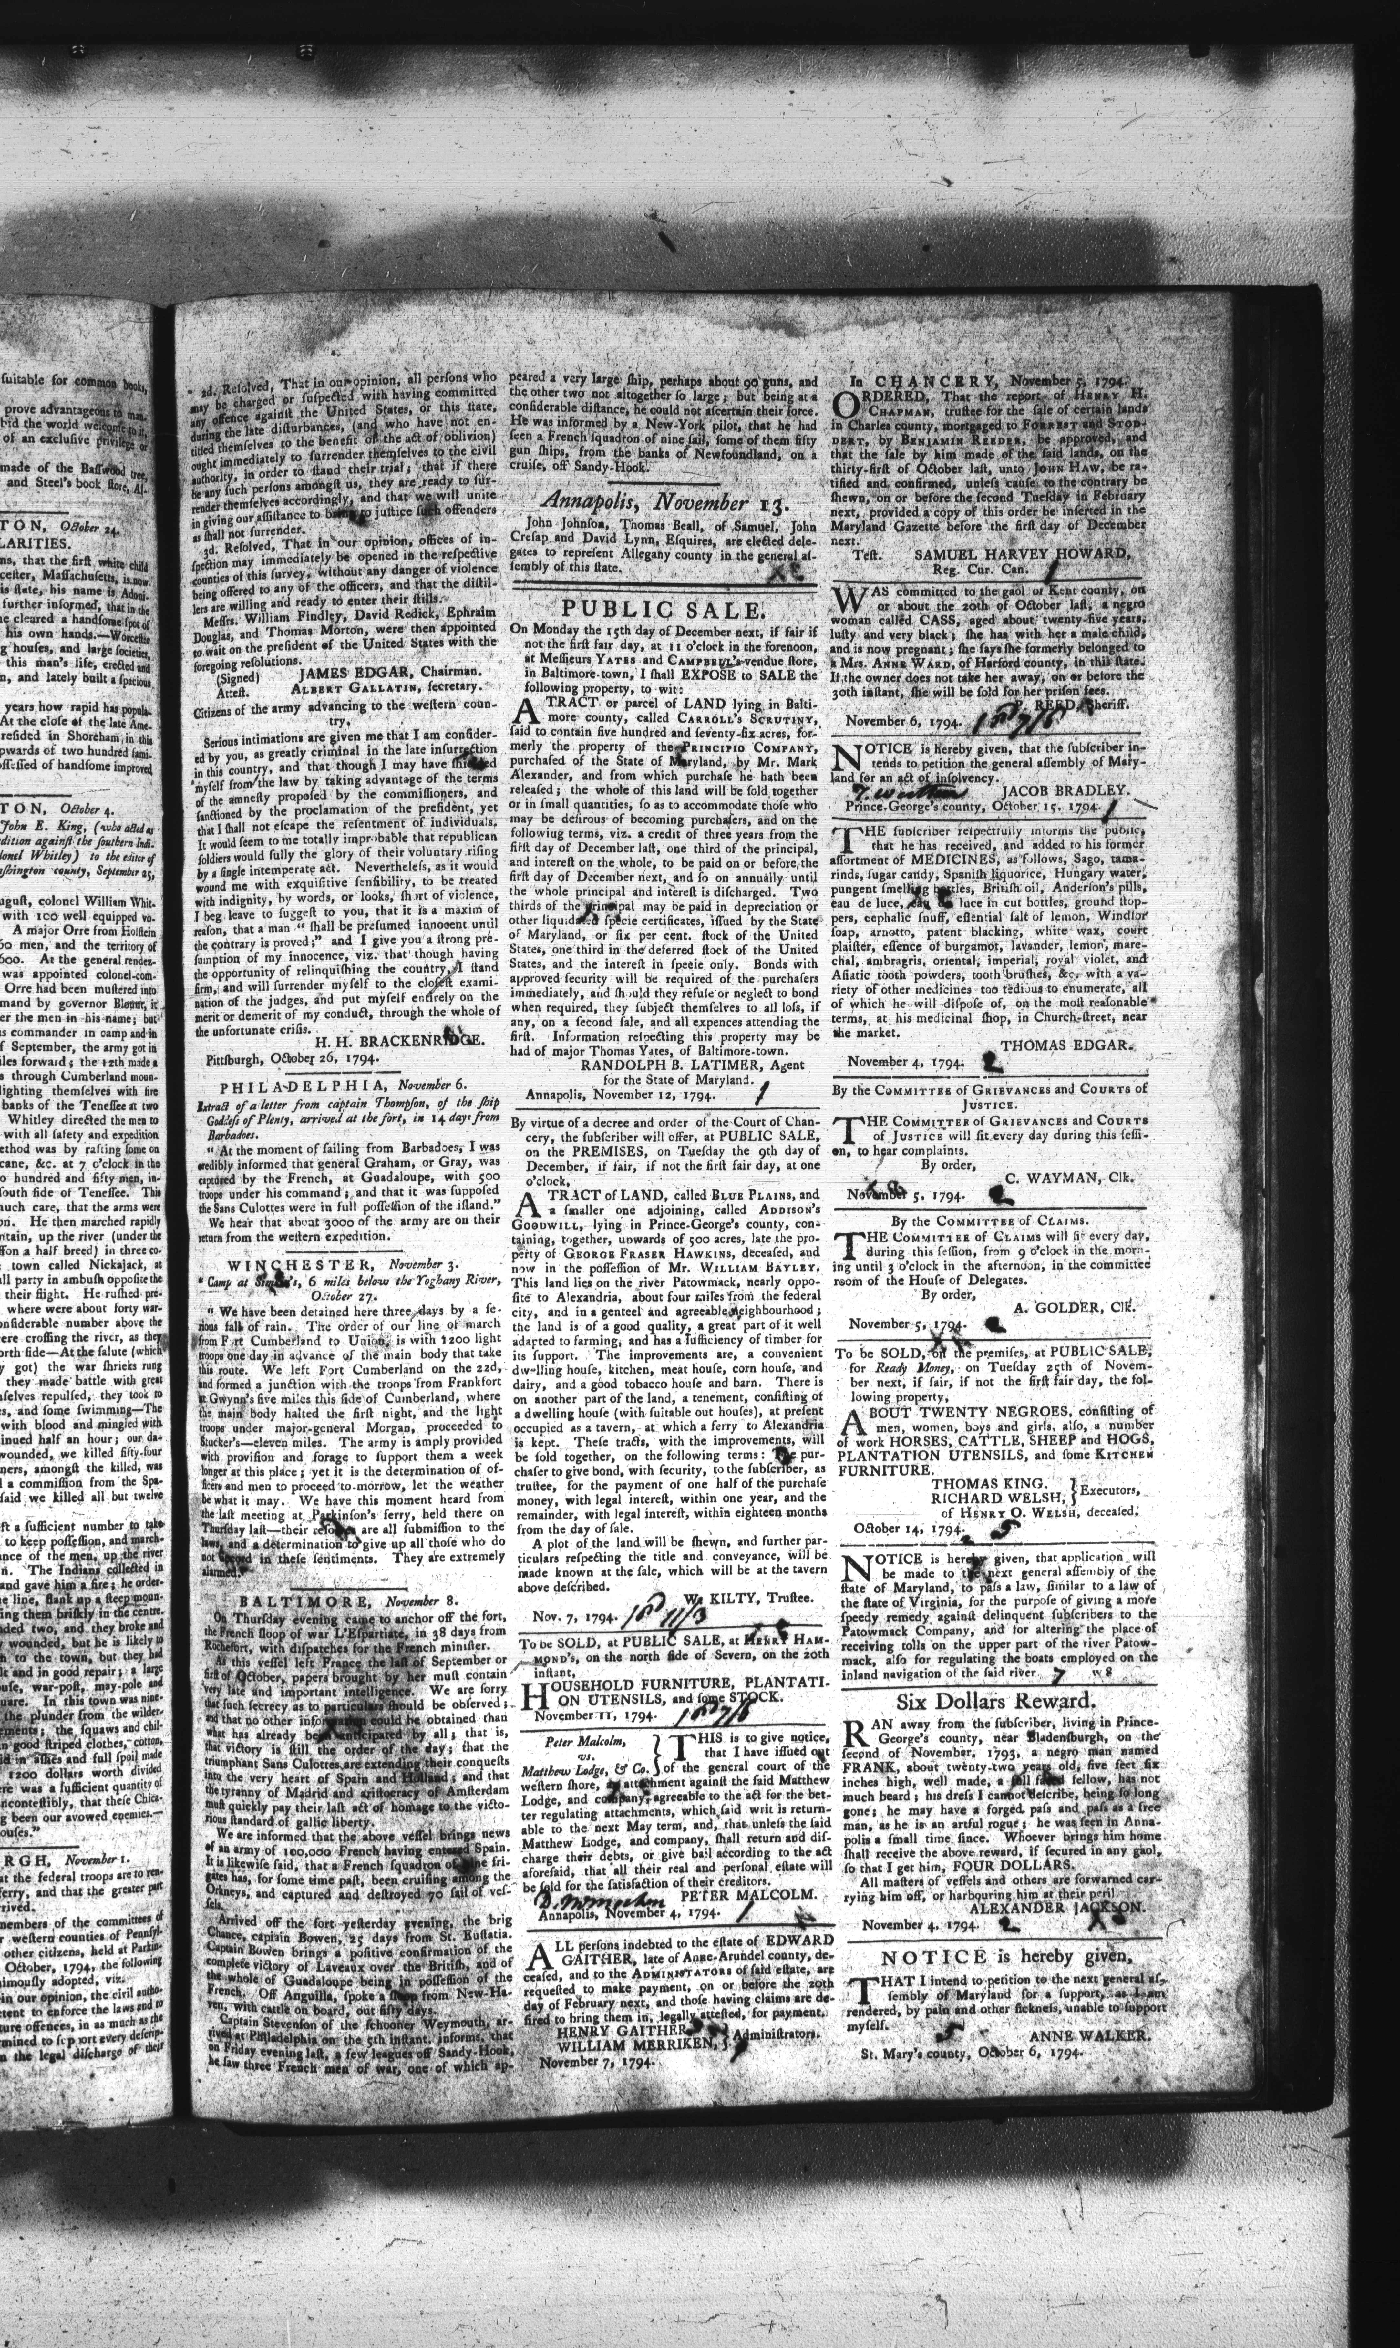 suitable for common books,
prove advantageous to man-
bid the world welcome to it,
of an exclusive privilege or
made of the Basswood tree,
and Steel's book store, Al-
TON, October 24.
LARITIES.
ns, that the first white child
cester, Massachusetts, is now
is state, his name is Adoni-
further informed, that in the
he cleared a handsome spot of
his own hands.—Worcester
g houses, and large societies,
this man's life, erected and
n, and lately built a spacious
years how rapid has popula-
At the close of the late Ame-
resided in Shoreham, in this
pwards of two hundred fami-
ossessed of handsome improved
TON, October 4.
John E. King, (who acted as
dition against the southern Indi-
lonel Whitley) to the editor of
ashington county, September 25,
ugust, colonel William Whit-
with 100 well equipped vo-
A major Orre from Holstein
60 men, and the territory of
600. At the general rendez-
was appointed colonel-com-
Orre had been mustered into
mand by governor Blount, it
er the men in his name; but
s commander in camp and in
f September, the army got in
iles forward; the 12th made a
s through Cumberland moun-
lighting themselves with fire
banks of the Tenessee at two
Whitley directed the men to
with all safety and expedition
ethod was by rafting some on
cane, &c. at 7 o'clock in the
o hundred and fifty men, in-
south side of Tenessee. This
much care, that the arms were
on. He then marched rapidly
ntain, up the river (under the
sson a half breed) in three co-
town called Nickajack, at
all party in ambush opposite the
their flight. He rushed pre-
where were about forty war-
nsiderable number above the
ere crossing the river, as they
orth side—At the salute (which
y got) the war shrieks rung
they made battle with great
mselves repulsed, they took to
es, and some swimming—The
with blood and mingled with
inued half an hour; our da-
wounded, we killed fifty-four
ners, amongst the killed, was
l a commission from the Spa-
said we killed all but twelve
ft a sufficient number to take
to keep possession, and march-
nce of the men, up the river
n. The Indians collected in
and gave him a fire; he order-
e line, flank up a steep moun-
ing them briskly in the centre.
nded two, and they broke and
y wounded, but he is likely to
h to the town, but they had
lt and in good repair; a large
ouse, war-post, may-pole and
uare. In this town was nine-
the plunder from the wilder-
ements; the squaws and chil-
n good striped clothes, cotton,
id in ashes and full spoil made
1200 dollars worth divided
ere was a sufficient quantity of
ncontestibly, that these Chica-
g been our avowed enemies.—
ouses."
RGH, November 1.
at the federal troops are to ren-
ferry, and that the greater part
rrived.
members of the committees of
r western counties of Pennsyl-
other citizens, held at Parkin-
October, 1794, the following
nimously adopted, viz.
in our opinion, the civil autho-
tent to enforce the laws and to
ture offences, in as much as the
mined to support every descrip-
n the legal discharge of their
2d. Resolved, That in our opinion, all persons who
may be charged or suspected with having committed
any offence against the United States, or this state,
during the late disturbances, (and who have not en-
titled themselves to the benefit of the act of oblivion)
ought immediately to surrender themselves to the civil
authority, in order to stand their trial; that if there
be any such persons amongst us, they are ready to sur-
render themselves accordingly, and that we will unite
in giving our assistance to bring to justice such offenders
as shall not surrender.
3d. Resolved, That in our opinion, offices of in-
spection may immediately be opened in the respective
counties of this survey, without any danger of violence
being offered to any of the officers, and that the distil-
lers are willing and ready to enter their stills.
Messrs. William Findley, David Redick, Ephraim
Douglas, and Thomas Morton, were then appointed
to wait on the president of the United States with the
foregoing resolutions.
(Signed) JAMES EDGAR, Chairman.
Attest. ALBERT GALLATIN, secretary.
Citizens of the army advancing to the western coun-
try,
Serious intimations are given me that I am consider-
ed by you, as greatly criminal in the late insurrection
in this country, and that though I may have shielded
myself from the law by taking advantage of the terms
of the amnesty proposed by the commissioners, and
sanctioned by the proclamation of the president, yet
that I shall not escape the resentment of individuals.
It would seem to me totally improbable that republican
soldiers would sully the glory of their voluntary rising
by a single intemperate act. Nevertheless, as it would
wound me with exquisitive sensibility, to be treated
with indignity, by words, or looks, short of violence,
I beg leave to suggest to you, that it is a maxim of
reason, that a man "shall be presumed innocent until
the contrary is proved;" and I give you a strong pre-
sumption of my innocence, viz. that though having
the opportunity of relinquishing the country, I stand
firm, and will surrender myself to the closest exami-
nation of the judges, and put myself entirely on the
merit or demerit of my conduct, through the whole of
the unfortunate crisis.
H. H. BRACKENRIDGE.
Pittsburgh, October 26, 1794.
PHILADELPHIA, November 6.
Extract of a letter from captain Thompson, of the ship
Goddess of Plenty, arrived at the fort, in 14 days from
Barbadoes.
"At the moment of sailing from Barbadoes, I was
credibly informed that general Graham, or Gray, was
captured by the French, at Guadaloupe, with 500
troops under his command; and that it was supposed
the Sans Culottes were in full possession of the island."
We hear that about 3000 of the army are on their
return from the western expedition.
WINCHESTER, November 3.
"Camp at 6 miles below the Yoghany River,
October 27.
"We have been detained here three days by a se-
rious fall of rain. The order of our line of march
from Fort Cumberland to Union, is with 1200 light
troops one day in advance of the main body that take
this route. We left Fort Cumberland on the 22d,
and formed a junction with the troops from Frankfort
at Gwynn's five miles this side of Cumberland, where
the main body halted the first night, and the light
troops under major-general Morgan, proceeded to
Stucker's—eleven miles. The army is amply provided
with provision and forage to support them a week
longer at this place; yet it is the determination of of-
ficers and men to proceed to-morrow, let the weather
be what it may. We have this moment heard from
the last meeting at Parkinson's ferry, held there on
Thursday last—their are all submission to the
laws, and a determination to give up all those who do
not in these sentiments. They are extremely
alarmed."
BALTIMORE, November 8.
On Thursday evening came to anchor off the fort,
the French sloop of war L'Espartiate, in 38 days from
Rochefort, with dispatches for the French minister.
As this vessel left France the last of September or
first of October, papers brought by her must contain
very late and important intelligence. We are sorry
that such secrecy as to particulars should be observed;
and that no other information could be obtained than
what has already been anticipated by all; that is,
that victory is still the order of the day; that the
triumphant Sans Culottes are extending their conquests
into the very heart of Spain and Holland; and that
the tyranny of Madrid and aristocracy of Amsterdam
must quickly pay their last act of homage to the victo-
rious standard of gallic liberty.
We are informed that the above vessel brings news
of an army of 100,000 French having entered Spain.
It is likewise said, that a French squadron of fri-
gates has, for some time past, been cruising among the
Orkneys, and captured and destroyed 70 sail of ves-
sels.
Arrived off the fort yesterday evening, the brig
Chance, captain Bowen, 25 days from St. Eustatia.
Captain Bowen brings a positive confirmation of the
complete victory of Laveaux over the British, and of
the whole of Guadaloupe being in possession of the
French. Off Anguilla, spoke a sloop from New-Ha-
ven, with cattle on board, out fifty days.
Captain Stevenson of the schooner Weymouth, ar-
rived at Philadelphia on the 5th instant, informs, that
on Friday evening last, a few leagues off Sandy-Hook,
he saw three French men of war, one of which ap-
peared a very large ship, perhaps about 90 guns, and
the other two not altogether so large; but being at a
considerable distance, he could not ascertain their force.
He was informed by a New-York pilot, that he had
seen a French squadron of nine sail, some of them fifty
gun ships, from the banks of Newfoundland, on a
cruise, off Sandy-Hook.
Annapolis, November 13.
John Johnson, Thomas Beall, of Samuel, John
Cresap and David Lynn, Esquires, are elected dele-
gates to represent Allegany county in the general as-
sembly of this state.
PUBLIC SALE.
On Monday the 15th day of December next, if fair if
not the first fair day, at 11 o'clock in the forenoon,
at Messieurs YATES and CAMPBELL's vendue store,
in Baltimore-town, I shall EXPOSE to SALE the
following property, to wit:
A TRACT or parcel of LAND lying in Balti-
more county, called CARROLL's SCRUTINY,
said to contain five hundred and seventy-six acres, for-
merly the property of the PRINCIPIO COMPANY,
purchased of the State of Maryland, by Mr. Mark
Alexander, and from which purchase he hath been
released; the whole of this land will be sold together
or in small quantities, so as to accommodate those who
may be desirous of becoming purchasers, and on the
following terms, viz. a credit of three years from the
first day of December last, one third of the principal,
and interest on the whole, to be paid on or before the
first day of December next, and so on annually until
the whole principal and interest is discharged. Two
thirds of the principal may be paid in depreciation or
other liquidated specie certificates, issued by the State
of Maryland, or six per cent. stock of the United
States, one third in the deferred stock of the United
States, and the interest in specie only. Bonds with
approved security will be required of the purchasers
immediately, and should they refuse or neglect to bond
when required, they subject themselves to all loss, if
any, on a second sale, and all expences attending the
first. Information respecting this property may be
had of major Thomas Yates, of Baltimore-town.
RANDOLPH B. LATIMER, Agent
for the State of Maryland.
Annapolis, November 12, 1794. 1
By virtue of a decree and order of the Court of Chan-
cery, the subscriber will offer, at PUBLIC SALE,
on the PREMISES, on Tuesday the 9th day of
December, if fair, if not the first fair day, at one
o'clock,
A TRACT of LAND, called BLUE PLAINS, and
a smaller one adjoining, called ADDISON's
GOODWILL, lying in Prince-George's county, con-
taining, together, upwards of 500 acres, late the pro-
perty of GEORGE FRASER HAWKINS, deceased, and
now in the possession of Mr. WILLIAM BAYLEY.
This land lies on the river Patowmack, nearly oppo-
site to Alexandria, about four miles from the federal
city, and in a genteel and agreeable neighbourhood;
the land is of a good quality, a great part of it well
adapted to farming, and has a sufficiency of timber for
its support. The improvements are, a convenient
dwelling house, kitchen, meat house, corn house, and
dairy, and a good tobacco house and barn. There is
on another part of the land, a tenement, consisting of
a dwelling house (with suitable out houses), at present
occupied as a tavern, at which a ferry to Alexandria
is kept. These tracts, with the improvements, will
be sold together, on the following terms: The pur-
chaser to give bond, with security, to the subscriber, as
trustee, for the payment of one half of the purchase
money, with legal interest, within one year, and the
remainder, with legal interest, within eighteen months
from the day of sale.
A plot of the land will be shewn, and further par-
ticulars respecting the title and conveyance, will be
made known at the sale, which will be at the tavern
above described.
W. KILTY, Trustee.
Nov. 7, 1794. 1 pd 11/3
To be SOLD, at PUBLIC SALE, at HENRY HAM-
MOND's, on the north side of Severn, on the 20th
instant,
HOUSEHOLD FURNITURE, PLANTATI-
ON UTENSILS, and some STOCK.
November 11, 1794. 1 pd 7/6
Peter Malcolm,
vs.
Matthew Lodge, & Co.
THIS is to give notice,
that I have issued out
of the general court of the
western shore, attachment against the said Matthew
Lodge, and company, agreeable to the act for the bet-
ter regulating attachments, which said writ is return-
able to the next May term, and, that unless the said
Matthew Lodge, and company, shall return and dis-
charge their debts, or give bail according to the act
aforesaid, that all their real and personal estate will
be sold for the satisfaction of their creditors.
PETER MALCOLM.
Annapolis, November 4, 1794. 1
ALL persons indebted to the estate of EDWARD
GAITHER, late of Anne-Arundel county, de-
ceased, and to the ADMINISTRATORS of said estate, are
requested to make payment, on or before the 20th
day of February next, and those having claims are de-
sired to bring them in, legally attested, for payment.
HENRY GAITHER,
WILLIAM MERRIKEN, } Administrators.
November 7, 1794.
In CHANCERY, November 5, 1794.
ORDERED, That the report of HENRY H.
CHAPMAN, trustee for the sale of certain lands
in Charles county, mortgaged to FORREST and STOD-
DERT, by BENJAMIN REEDER, be approved, and
that the sale by him made of the said lands, on the
thirty-first of October last, unto JOHN HAW, be ra-
tified and confirmed, unless cause to the contrary be
shewn, on or before the second Tuesday in February
next, provided a copy of this order be inserted in the
Maryland Gazette before the first day of December
next.
Test. SAMUEL HARVEY HOWARD,
Reg. Cur. Can. 1
WAS committed to the gaol of Kent county, on
or about the 20th of October last, a negro
woman called CASS, aged about twenty-five years,
lusty and very black; she has with her a male child,
and is now pregnant; she says she formerly belonged to
a Mrs. ANNE WARD, of Harford county, in this state.
If the owner does not take her away, on or before the
30th instant, she will be sold for her prison fees.
REED, Sheriff.
November 6, 1794. 1 pd 7/6
NOTICE is hereby given, that the subscriber in-
tends to petition the general assembly of Mary-
land for an act of insolvency.
JACOB BRADLEY.
Prince George's county, October 15, 1794. 1
THE subscriber respectfully informs the public,
that he has received, and added to his former
assortment of MEDICINES, as follows, Sago, tama-
rinds, sugar candy, Spanish liquorice, Hungary water,
pungent smelling bottles, British oil, Anderson's pills,
eau de luce, luce in cut bottles, ground stop-
pers, cephalic snuff, essential salt of lemon, Windsor
soap, arnotto, patent blacking, white wax, court
plaister, essence of burgamot, lavander, lemon, mare-
chal, ambragris, oriental, imperial, royal violet, and
Asiatic tooth powders, tooth brushes, &c. with a va-
riety of other medicines too tedious to enumerate, all
of which he will dispose of, on the most reasonable
terms, at his medicinal shop, in Church-street, near
the market.
THOMAS EDGAR.
November 4, 1794. 2
By the COMMITTEE of GRIEVANCES and COURTS of
JUSTICE.
THE COMMITTEE of GRIEVANCES and COURTS
of JUSTICE will sit every day during this sessi-
on, to hear complaints.
By order,
C. WAYMAN, Clk.
November 5, 1794. 2
By the COMMITTEE of CLAIMS.
THE COMMITTEE of CLAIMS will sit every day,
during this session, from 9 o'clock in the morn-
ing until 3 o'clock in the afternoon, in the committee
room of the House of Delegates.
By order,
A. GOLDER, Clk.
November 5, 1794. 2
To be SOLD, on the premises, at PUBLIC SALE,
for Ready Money, on Tuesday 25th of Novem-
ber next, if fair, if not the first fair day, the fol-
lowing property,
ABOUT TWENTY NEGROES, consisting of
men, women, boys and girls, also, a number
of work HORSES, CATTLE, SHEEP and HOGS,
PLANTATION UTENSILS, and some KITCHEN
FURNITURE.
THOMAS KING,
RICHARD WELSH, } Executors,
of HENRY O. WELSH, deceased.
October 14, 1794. 5
NOTICE is hereby given, that application will
be made to the next general assembly of the
state of Maryland, to pass a law, similar to a law of
the state of Virginia, for the purpose of giving a more
speedy remedy against delinquent subscribers to the
Patowmack Company, and for altering the place of
receiving tolls on the upper part of the river Patow-
mack, also for regulating the boats employed on the
inland navigation of the said river. 7 w 8
Six Dollars Reward.
RAN away from the subscriber, living in Prince-
George's county, near Bladensburgh, on the
second of November, 1793, a negro man named
FRANK, about twenty-two years old, five feet six
inches high, well made, a full faced fellow, has not
much beard; his dress I cannot describe, being so long
gone; he may have a forged pass and pass as a free
man, as he is an artful rogue; he was seen in Anna-
polis a small time since. Whoever brings him home
shall receive the above reward, if secured in any gaol,
so that I get him, FOUR DOLLARS.
All masters of vessels and others are forwarned car-
rying him off, or harbouring him at their peril.
ALEXANDER JACKSON.
November 4, 1794. 2
NOTICE is hereby given,
THAT I intend to petition to the next general as-
sembly of Maryland for a support, as I am
rendered, by pain and other sickness, unable to support
myself. 5
ANNE WALKER.
St. Mary's county, October 6, 1794.